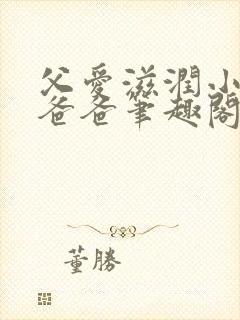 父愛滋潤小
爸爸筆趣閣
董勝